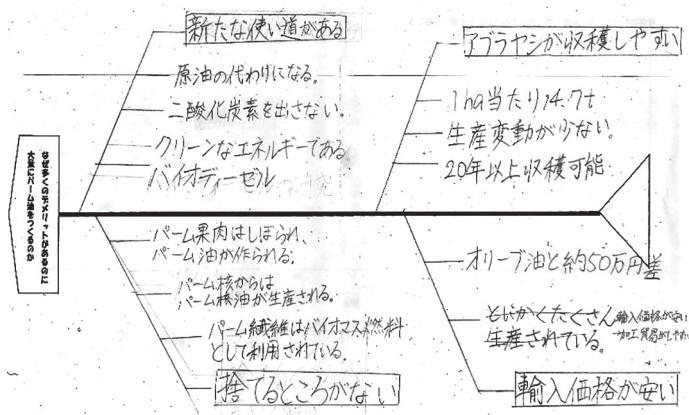 なぜ多くのデメリットがあるのに
大量にパーム油をつくるのか
新たな使い道がある
原油の代わりになる。
二酸化炭素を出さない。
クリーンなエネルギーである
バイオディーゼル
アブラヤシが収穫しやすい
1ha当たり14.7t
生産変動が少ない。
20年以上収穫可能
パーム果肉はしぼられ、
パーム油が作られる。
パーム核からは
パーム核油が生産される。
パーム繊維はバイオマス燃料
として利用されている。
捨てるところがない
オリーブ油と約50万円差
とにかくたくさん
生産されている。
輸入価格が安い
→加工貿易がしやすい
輸入価格が安い